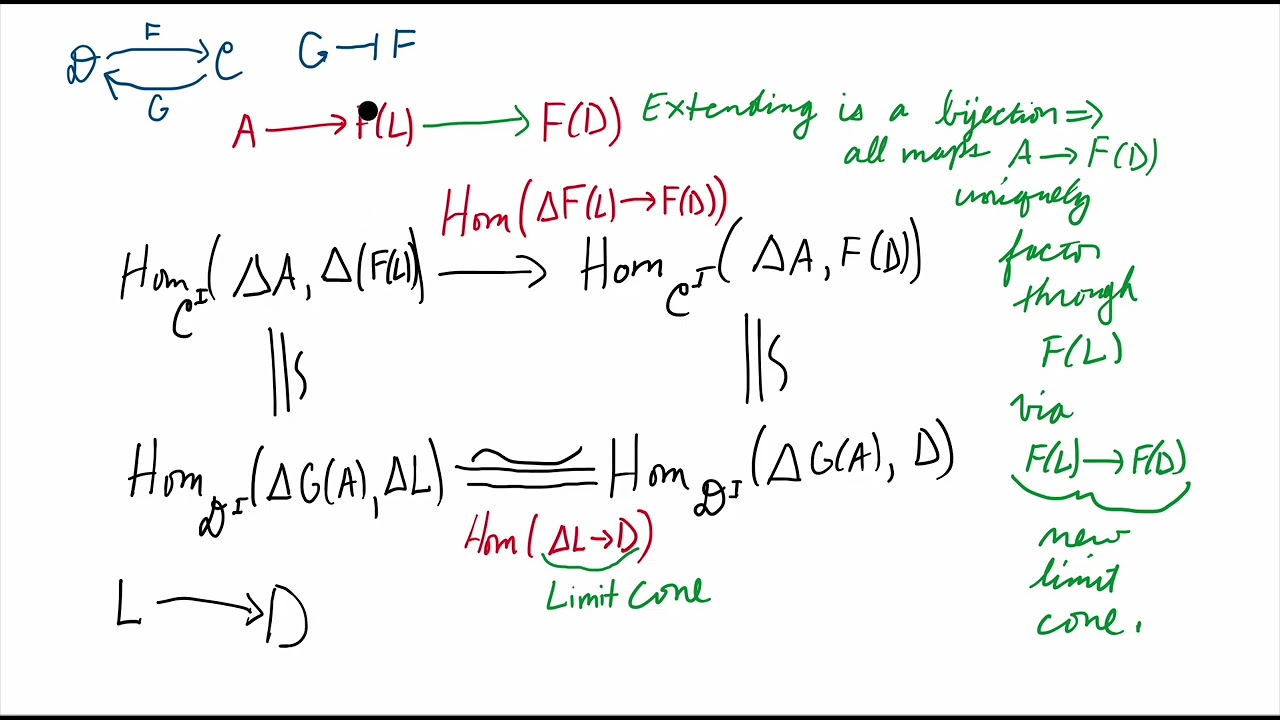 F
𝒟 ⇄ 𝒞 G ⊣ F
G
A → F(L) → F(D)
Extending is a bijection ⇒
all maps A → F(D)
uniquely
factor
through
F(L)
via
F(L) → F(D)
new
limit
cone.
Hom(ΔF(L) → F(D))
Hom_{𝒞^I}(ΔA, Δ(F(L))) → Hom_{𝒞^I}(ΔA, F(D))
||S ||S
Hom_{𝒟^I}(ΔG(A), ΔL) ≅ Hom_{𝒟^I}(ΔG(A), D)
Hom(ΔL → D)
Limit Cone
L → D